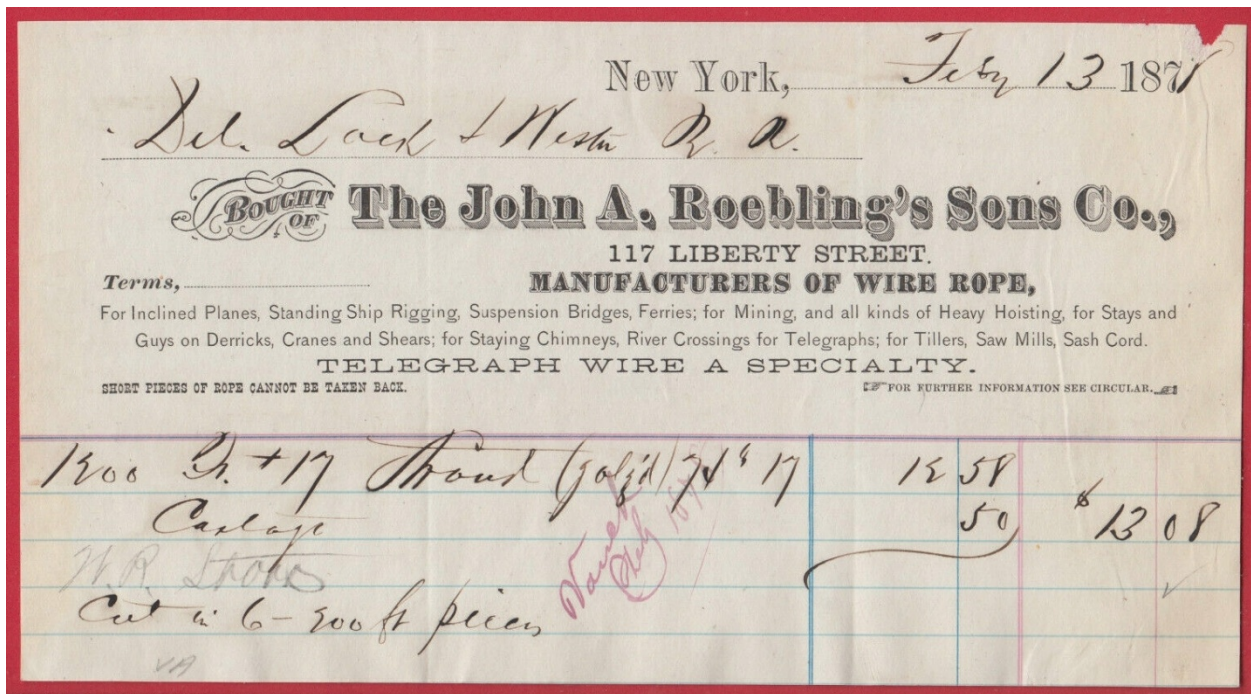 New York, Feby 13 1878
Del. Lack & Westn R. R.
BOUGHT OF The John A. Roebling's Sons Co.,
117 LIBERTY STREET.
Terms, MANUFACTURERS OF WIRE ROPE,
For Inclined Planes, Standing Ship Rigging, Suspension Bridges, Ferries; for Mining, and all kinds of Heavy Hoisting, for Stays and
Guys on Derricks, Cranes and Shears; for Staying Chimneys, River Crossings for Telegraphs; for Tillers, Saw Mills, Sash Cord.
TELEGRAPH WIRE A SPECIALTY.
SHORT PIECES OF ROPE CANNOT BE TAKEN BACK. FOR FURTHER INFORMATION SEE CIRCULAR.
1200 17 Strand (galz'd) 74 17 12 58
Cartage 50 $ 13 08
W.R. Storrs
Cut in 6 - 200 ft pieces